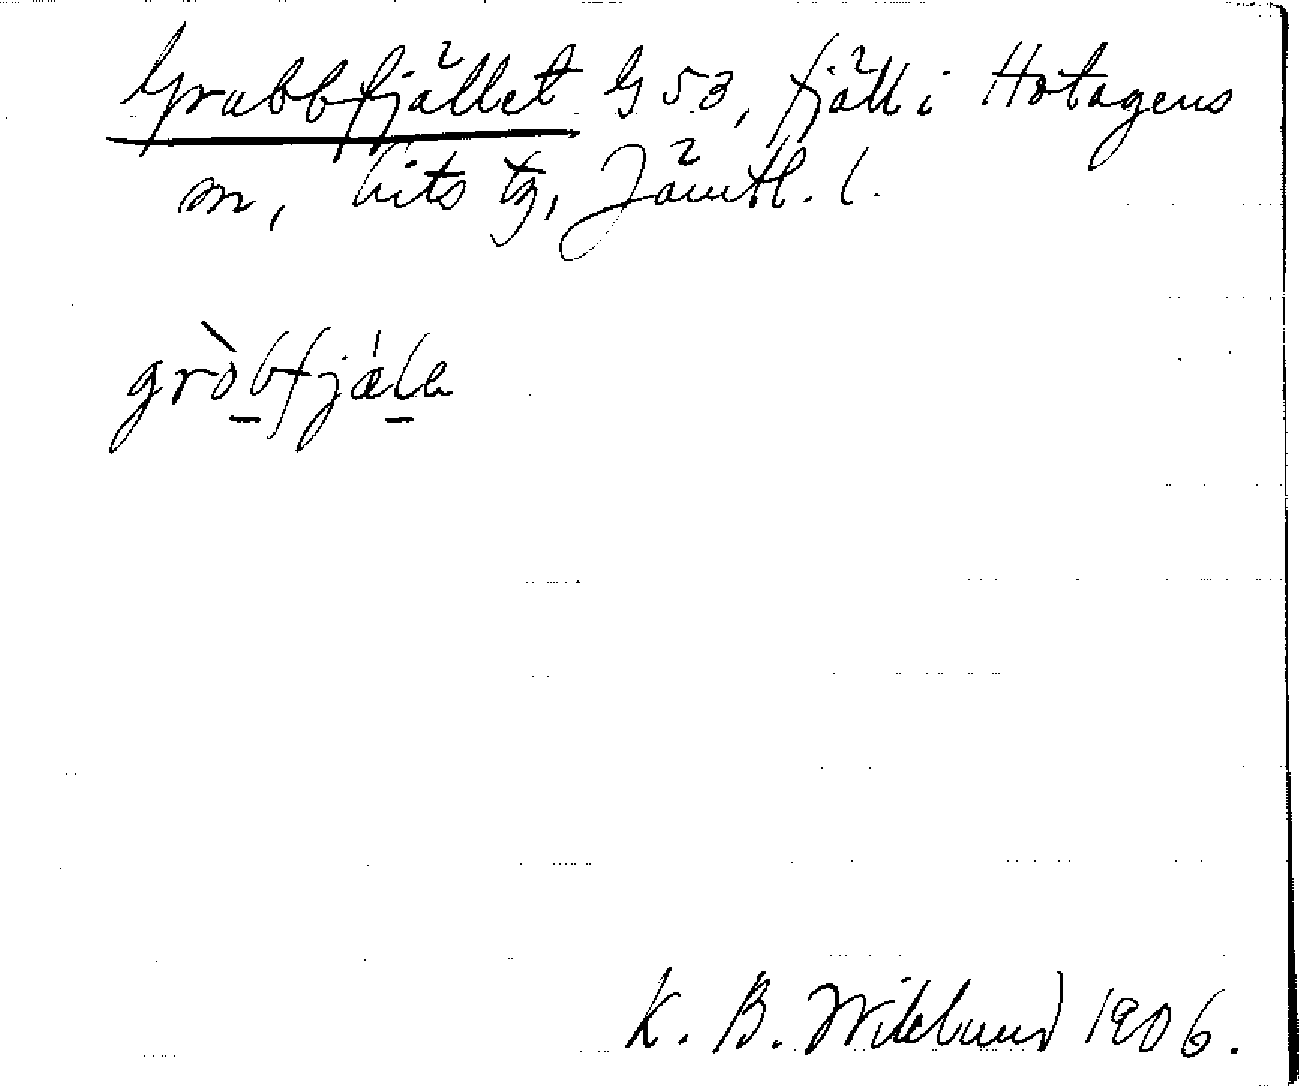 Grubbfjället G 53, fjäll i Hotagens
m, Lits tg, Jämtl. l.
gròbfjála
K. B. Wiklund 1906.